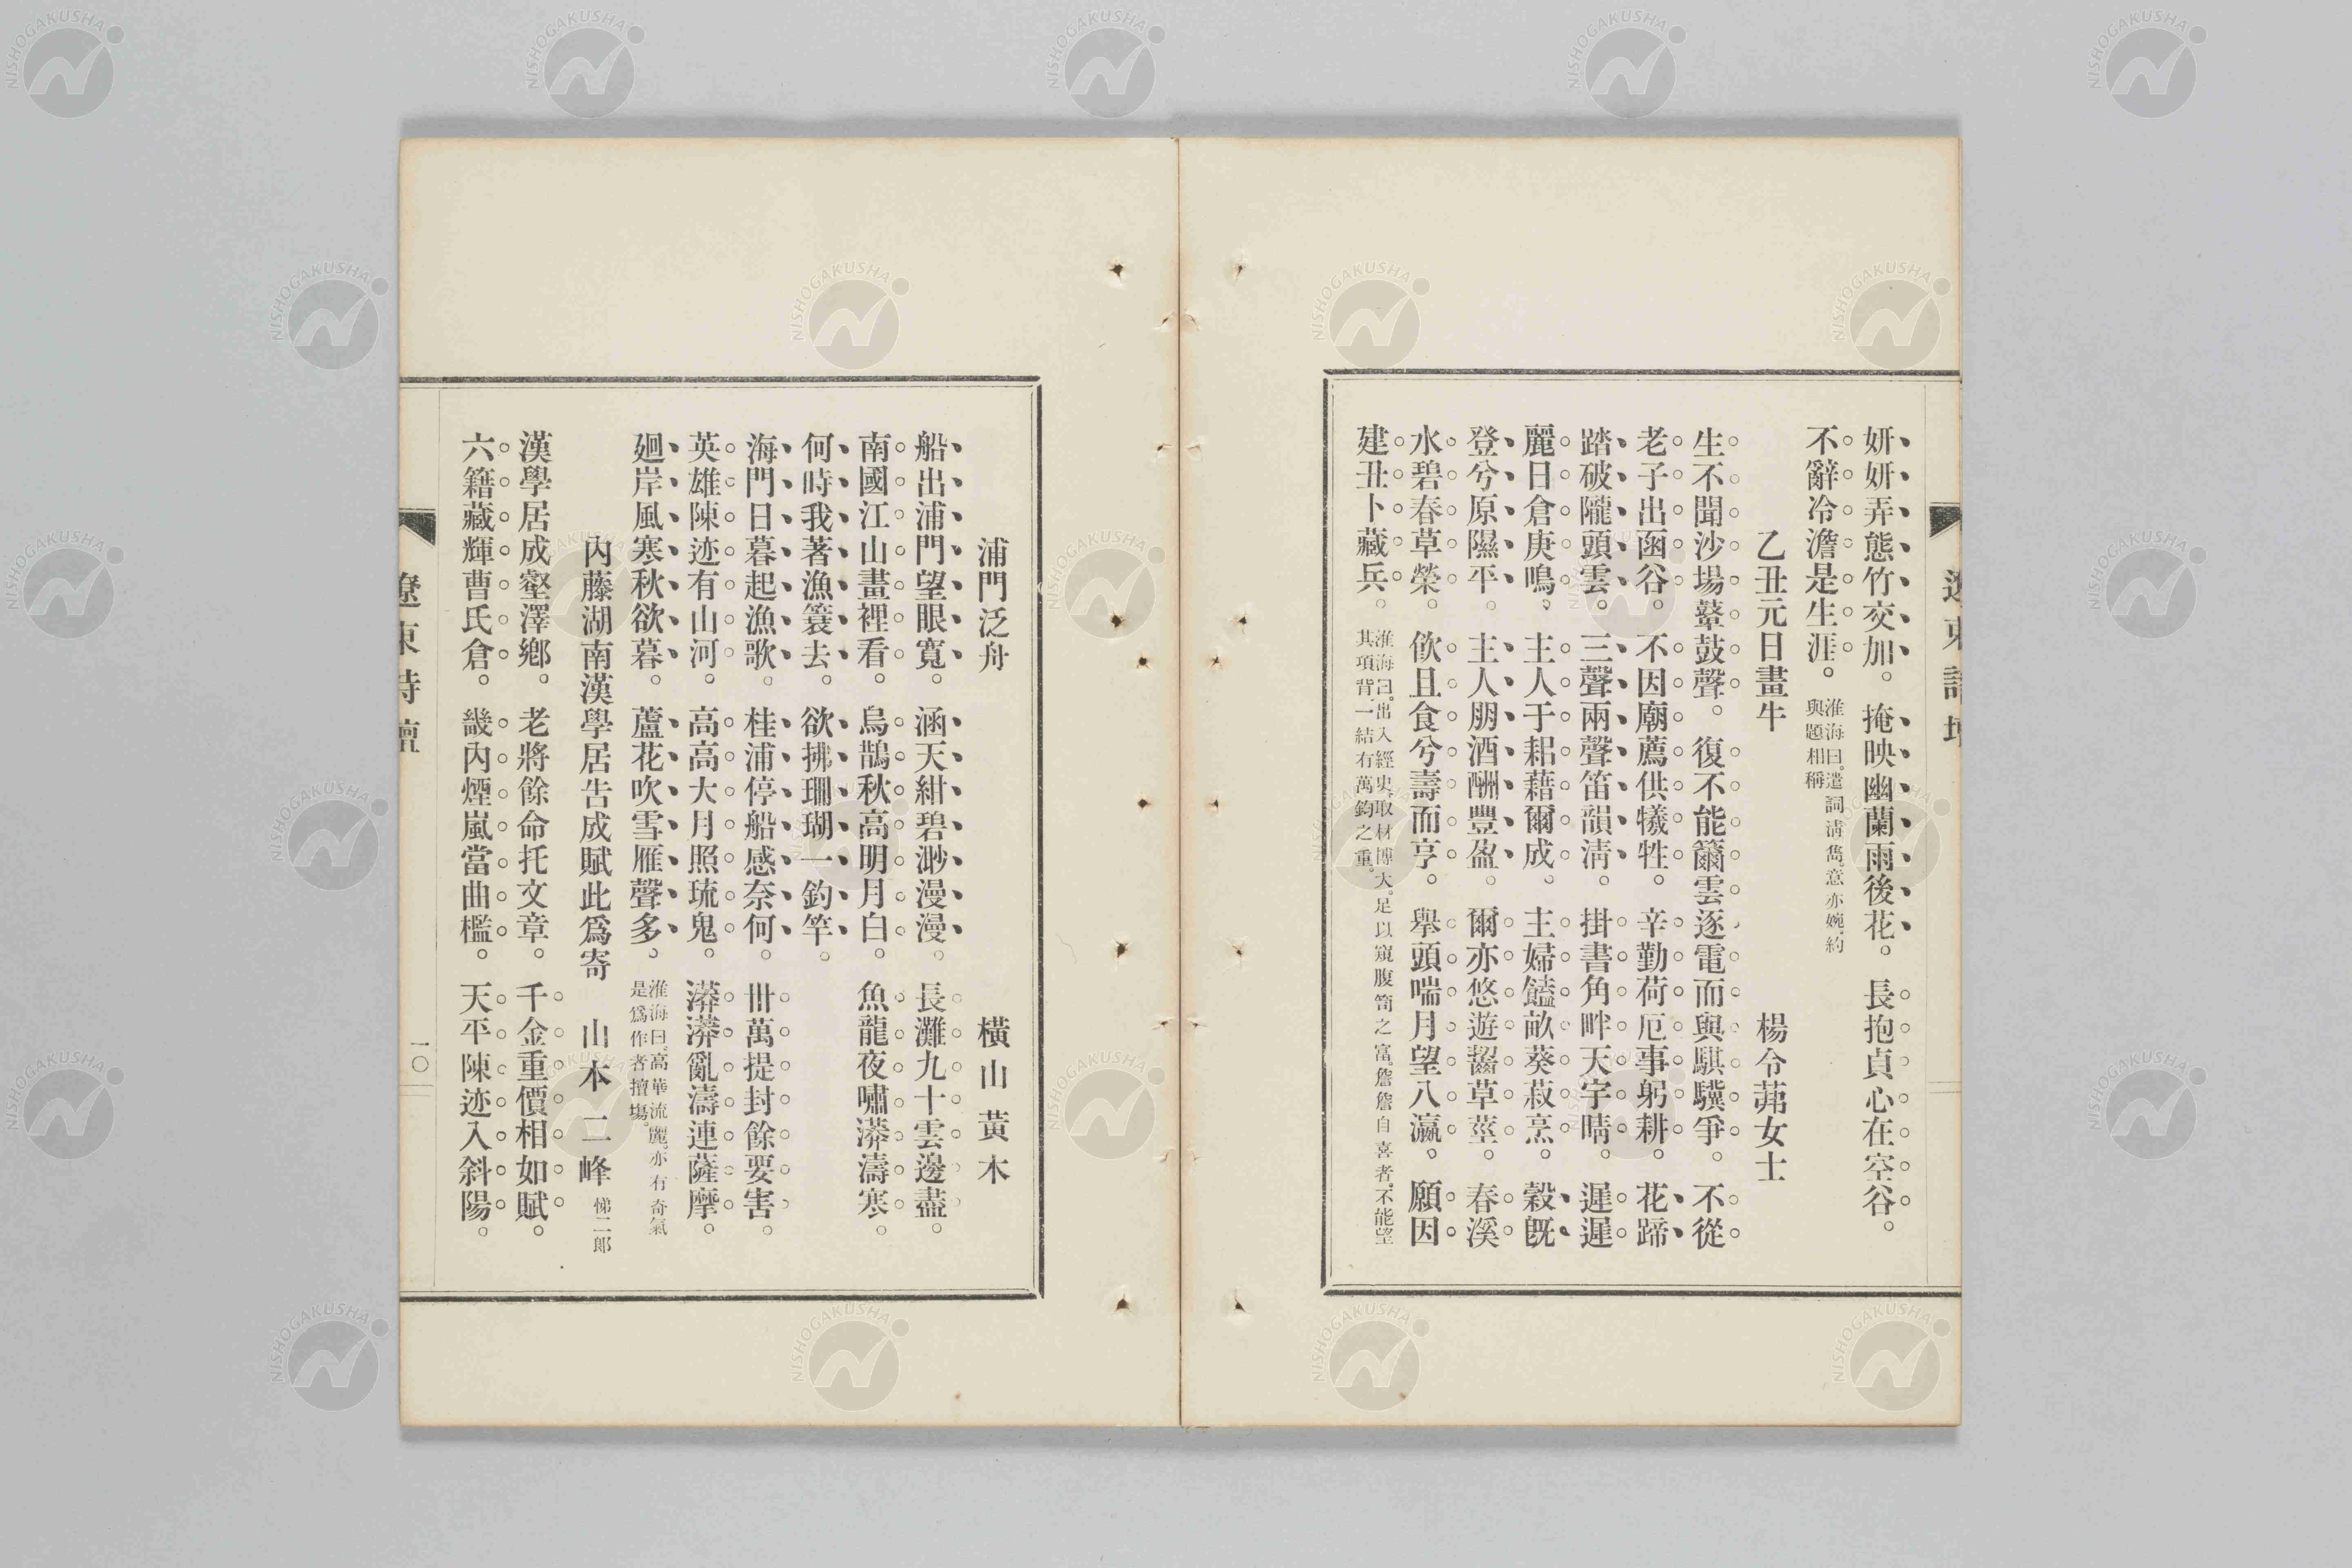 妍妍弄態竹交加。掩映幽蘭雨後花。長抱貞心在空谷。
不辭冷澹是生涯。淮海曰。遣詞清雋。意亦婉約
與題相稱
乙丑元日畫牛 楊令茀女士
生不聞沙場鼙鼓聲。復不能籋雲逐電而與騏驥爭。不從
老子出函谷。不因廟薦供犧牲。辛勤荷厄事躬耕。花蹄
踏破隴頭雲。三聲兩聲笛韻清。掛書角畔天宇晴。遲遲
麗日倉庚鳴。主人于耜藉爾成。主婦饁畝葵菽烹。穀既
登兮原隰平。主人朋酒酬豐盈。爾亦悠遊齧草莖。春溪
水碧春草榮。飲且食兮壽而亨。舉頭喘月望八瀛。願因
建丑卜藏兵。淮海曰。出入經史。取材博大。足以窺腹笥之富。詹詹自喜者。不能望
其項背。一結有萬鈞之重。
遼東詩壇
浦門泛舟 橫山黃木
船出浦門望眼寬。涵天紺碧渺漫漫。長灘九十雲邊盡。
南國江山畫裡看。烏鵲秋高明月白。魚龍夜嘯漭濤寒。
何時我著漁簑去。欲拂珊瑚一釣竿。
海門日暮起漁歌。桂浦停船感奈何。卌萬提封餘要害。
英雄陳迹有山河。高高大月照琉鬼。漭漭亂濤連薩摩。
廻岸風寒秋欲暮。蘆花吹雪雁聲多。淮海曰。高華流麗。亦有奇氣
是爲作者擅塲。
內藤湖南漢學居告成賦此爲寄 山本二峰 悌二郎
漢學居成壑澤鄉。老將餘命托文章。千金重價相如賦。
六籍藏輝曹氏倉。畿內煙嵐當曲檻。天平陳迹入斜陽。
遼東詩壇 一〇
NISHOGAKUSHA